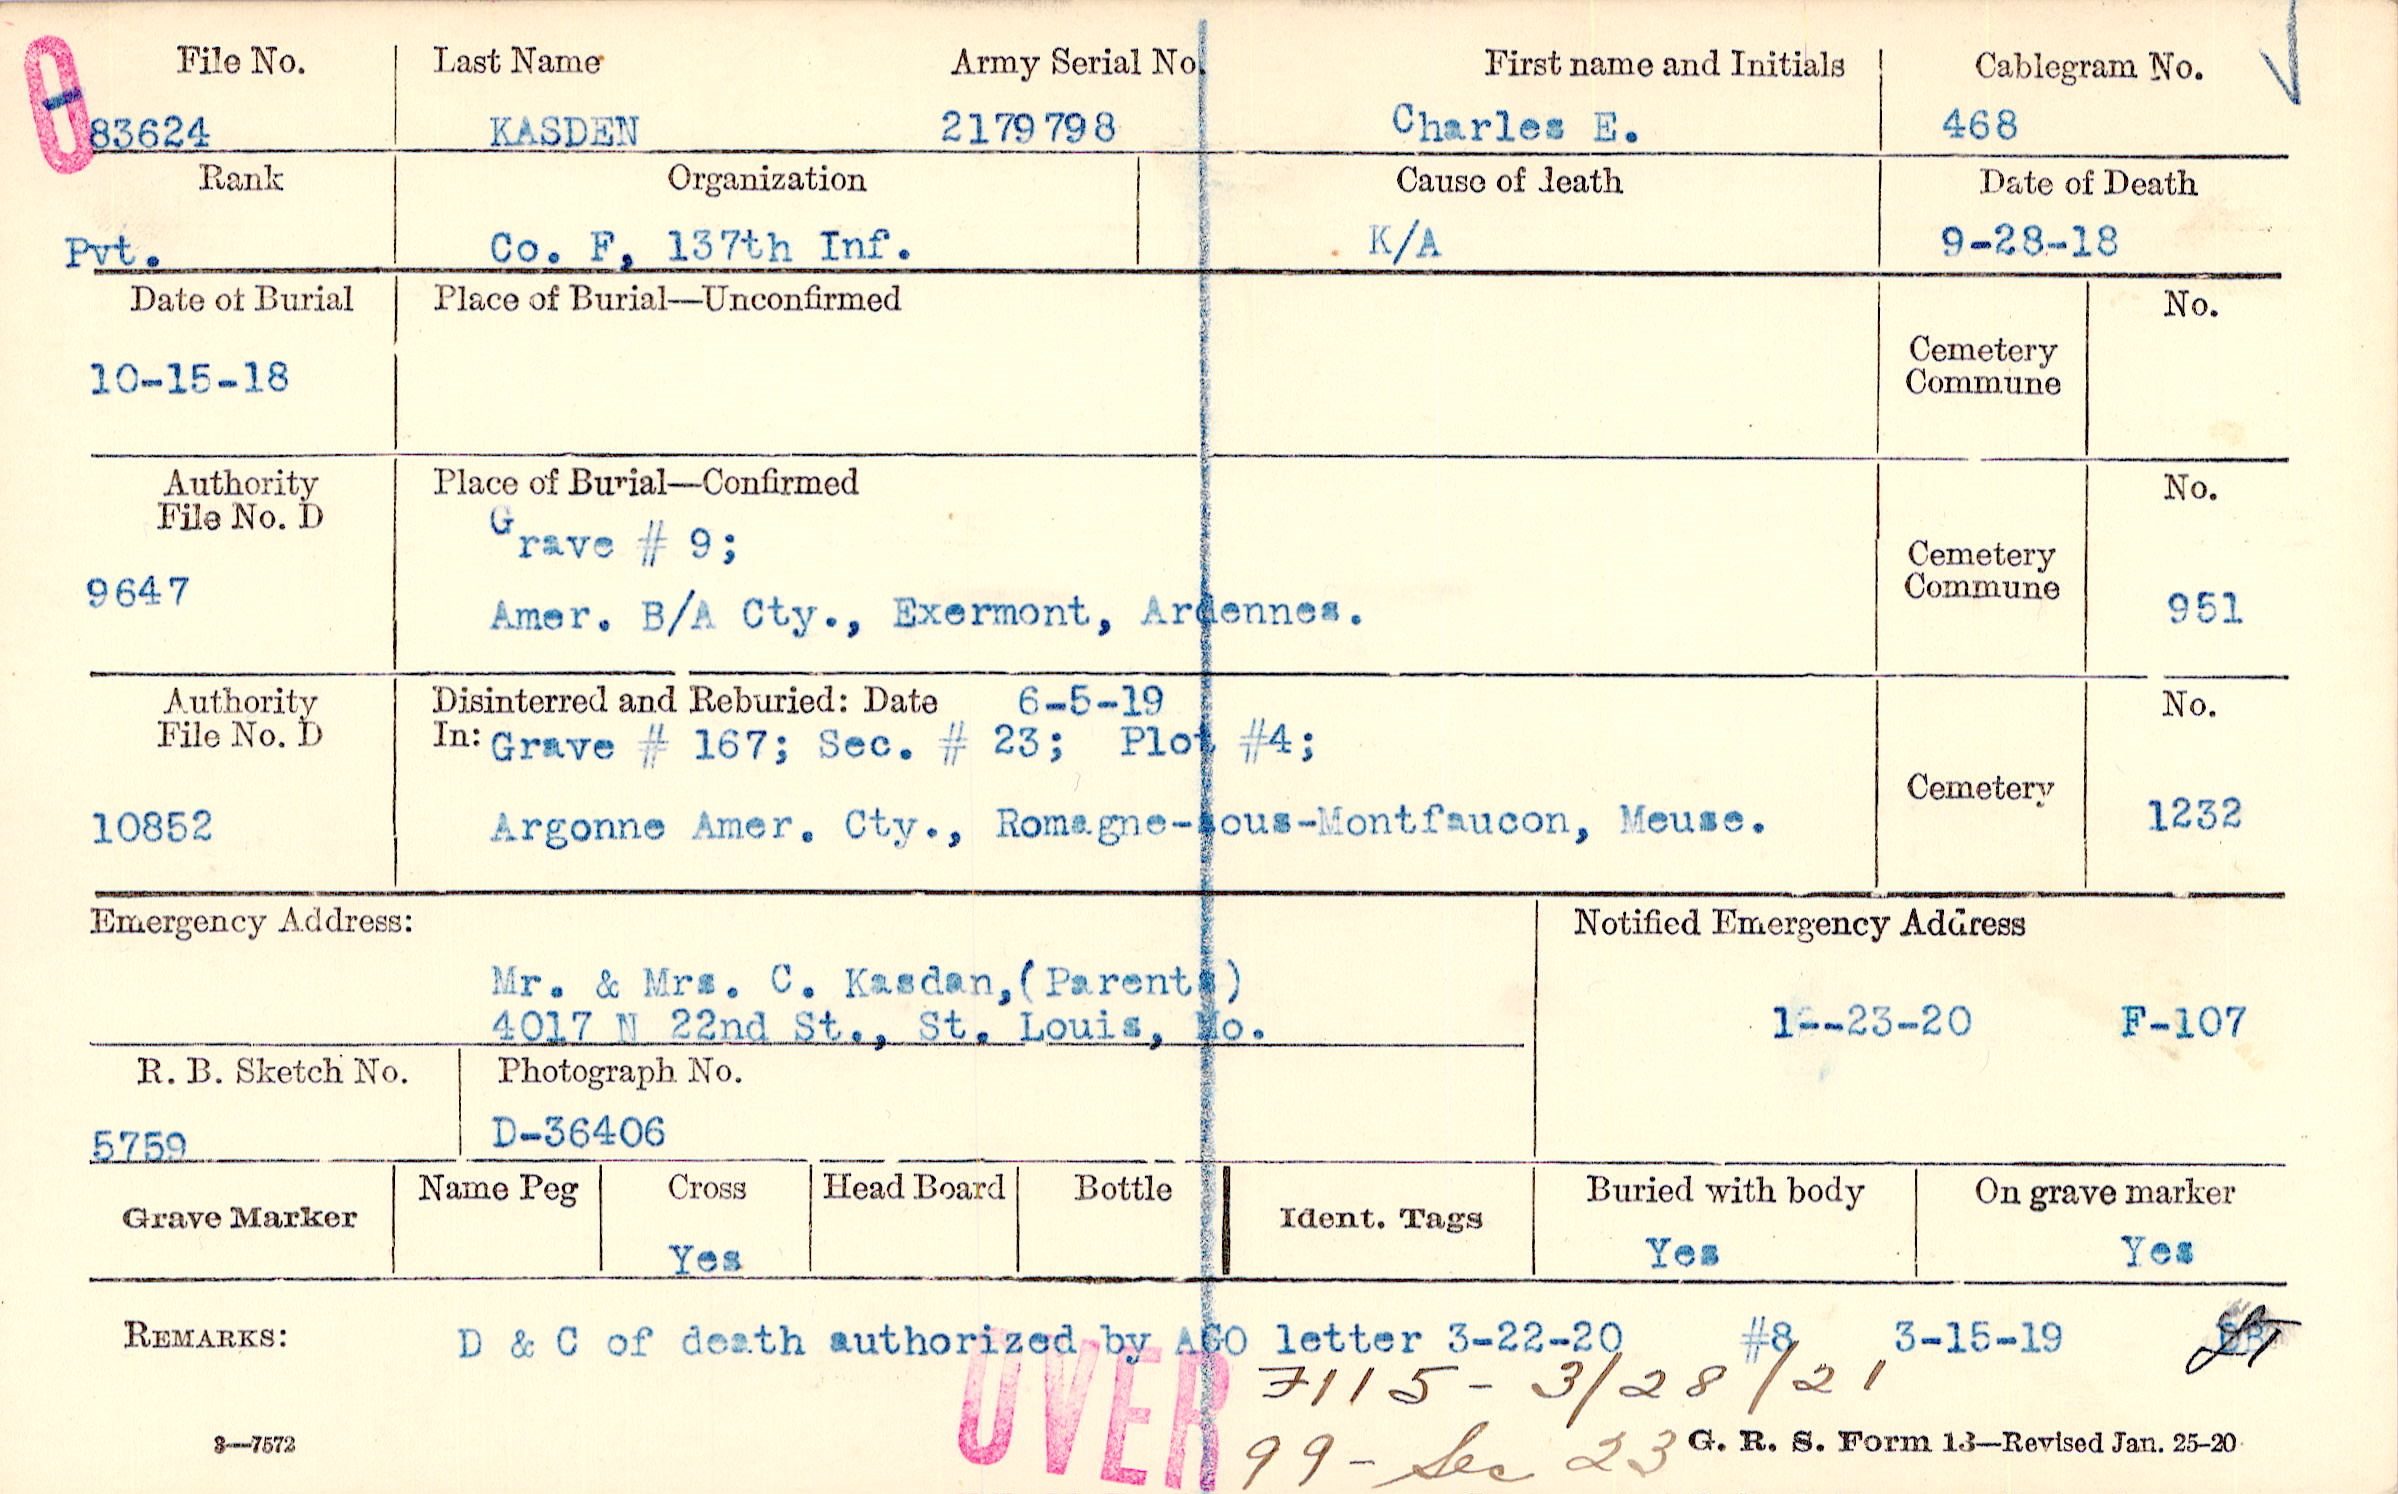 File No. Last Name Army Serial No. First name and Initials Cablegram No.
83624 KASDEN 2179798 Charles E. 468
Rank Organization Cause of death Date of Death
Pvt. Co. F, 137th Inf. K/A 9-28-18
Date of Burial Place of Burial—Unconfirmed No.
10-15-18
Cemetery
Commune
Authority Place of Burial—Confirmed No.
File No. D
Grave # 9;
Cemetery
Commune
9647 Amer. B/A Cty., Exermont, Ardennes. 951
Authority Disinterred and Reburied: Date 6-5-19 No.
File No. D In: Grave # 167; Sec. # 23; Plot #4;
Cemetery
10852 Argonne Amer. Cty., Romagne-sous-Montfaucon, Meuse. 1232
Emergency Address: Notified Emergency Address
Mr. & Mrs. C. Kasdan,(Parents)
4017 N 22nd St., St. Louis, Mo. F-107
R. B. Sketch No. Photograph No.
5759 D-36406
Grave Marker Name Peg Cross Head Board Bottle Ident. Tags Buried with body On grave marker
Yes Yes Yes
REMARKS: D & C of death authorized by AGO letter 3-22-20 #8 3-15-19
OVER 7115 - 3/28/21
99 - Sec 23
3—7572 G. R. S. Form 13—Revised Jan. 25-20